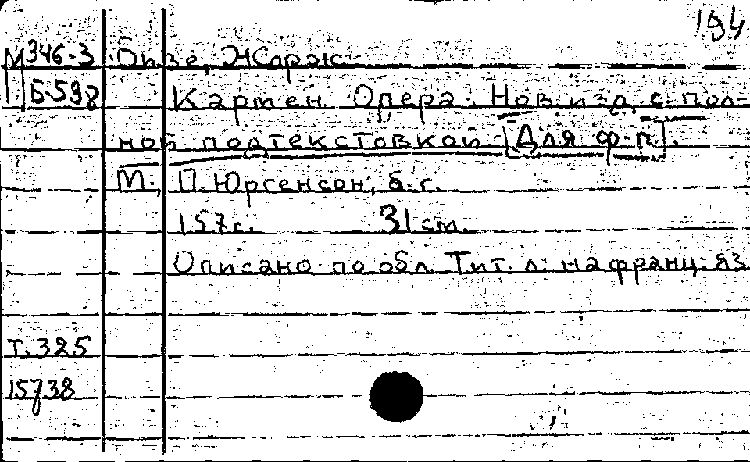 194
М 346-3 Бизе, Жорж
Б-598 Кармен. Опера. Нов. изд. с пол-
ной подтекстовкой [Для ф-п.].
М., П. Юргенсон, б. г.
157 с. 31 см.
Описано по обл. Тит. л. на франц. яз.
Т. 325